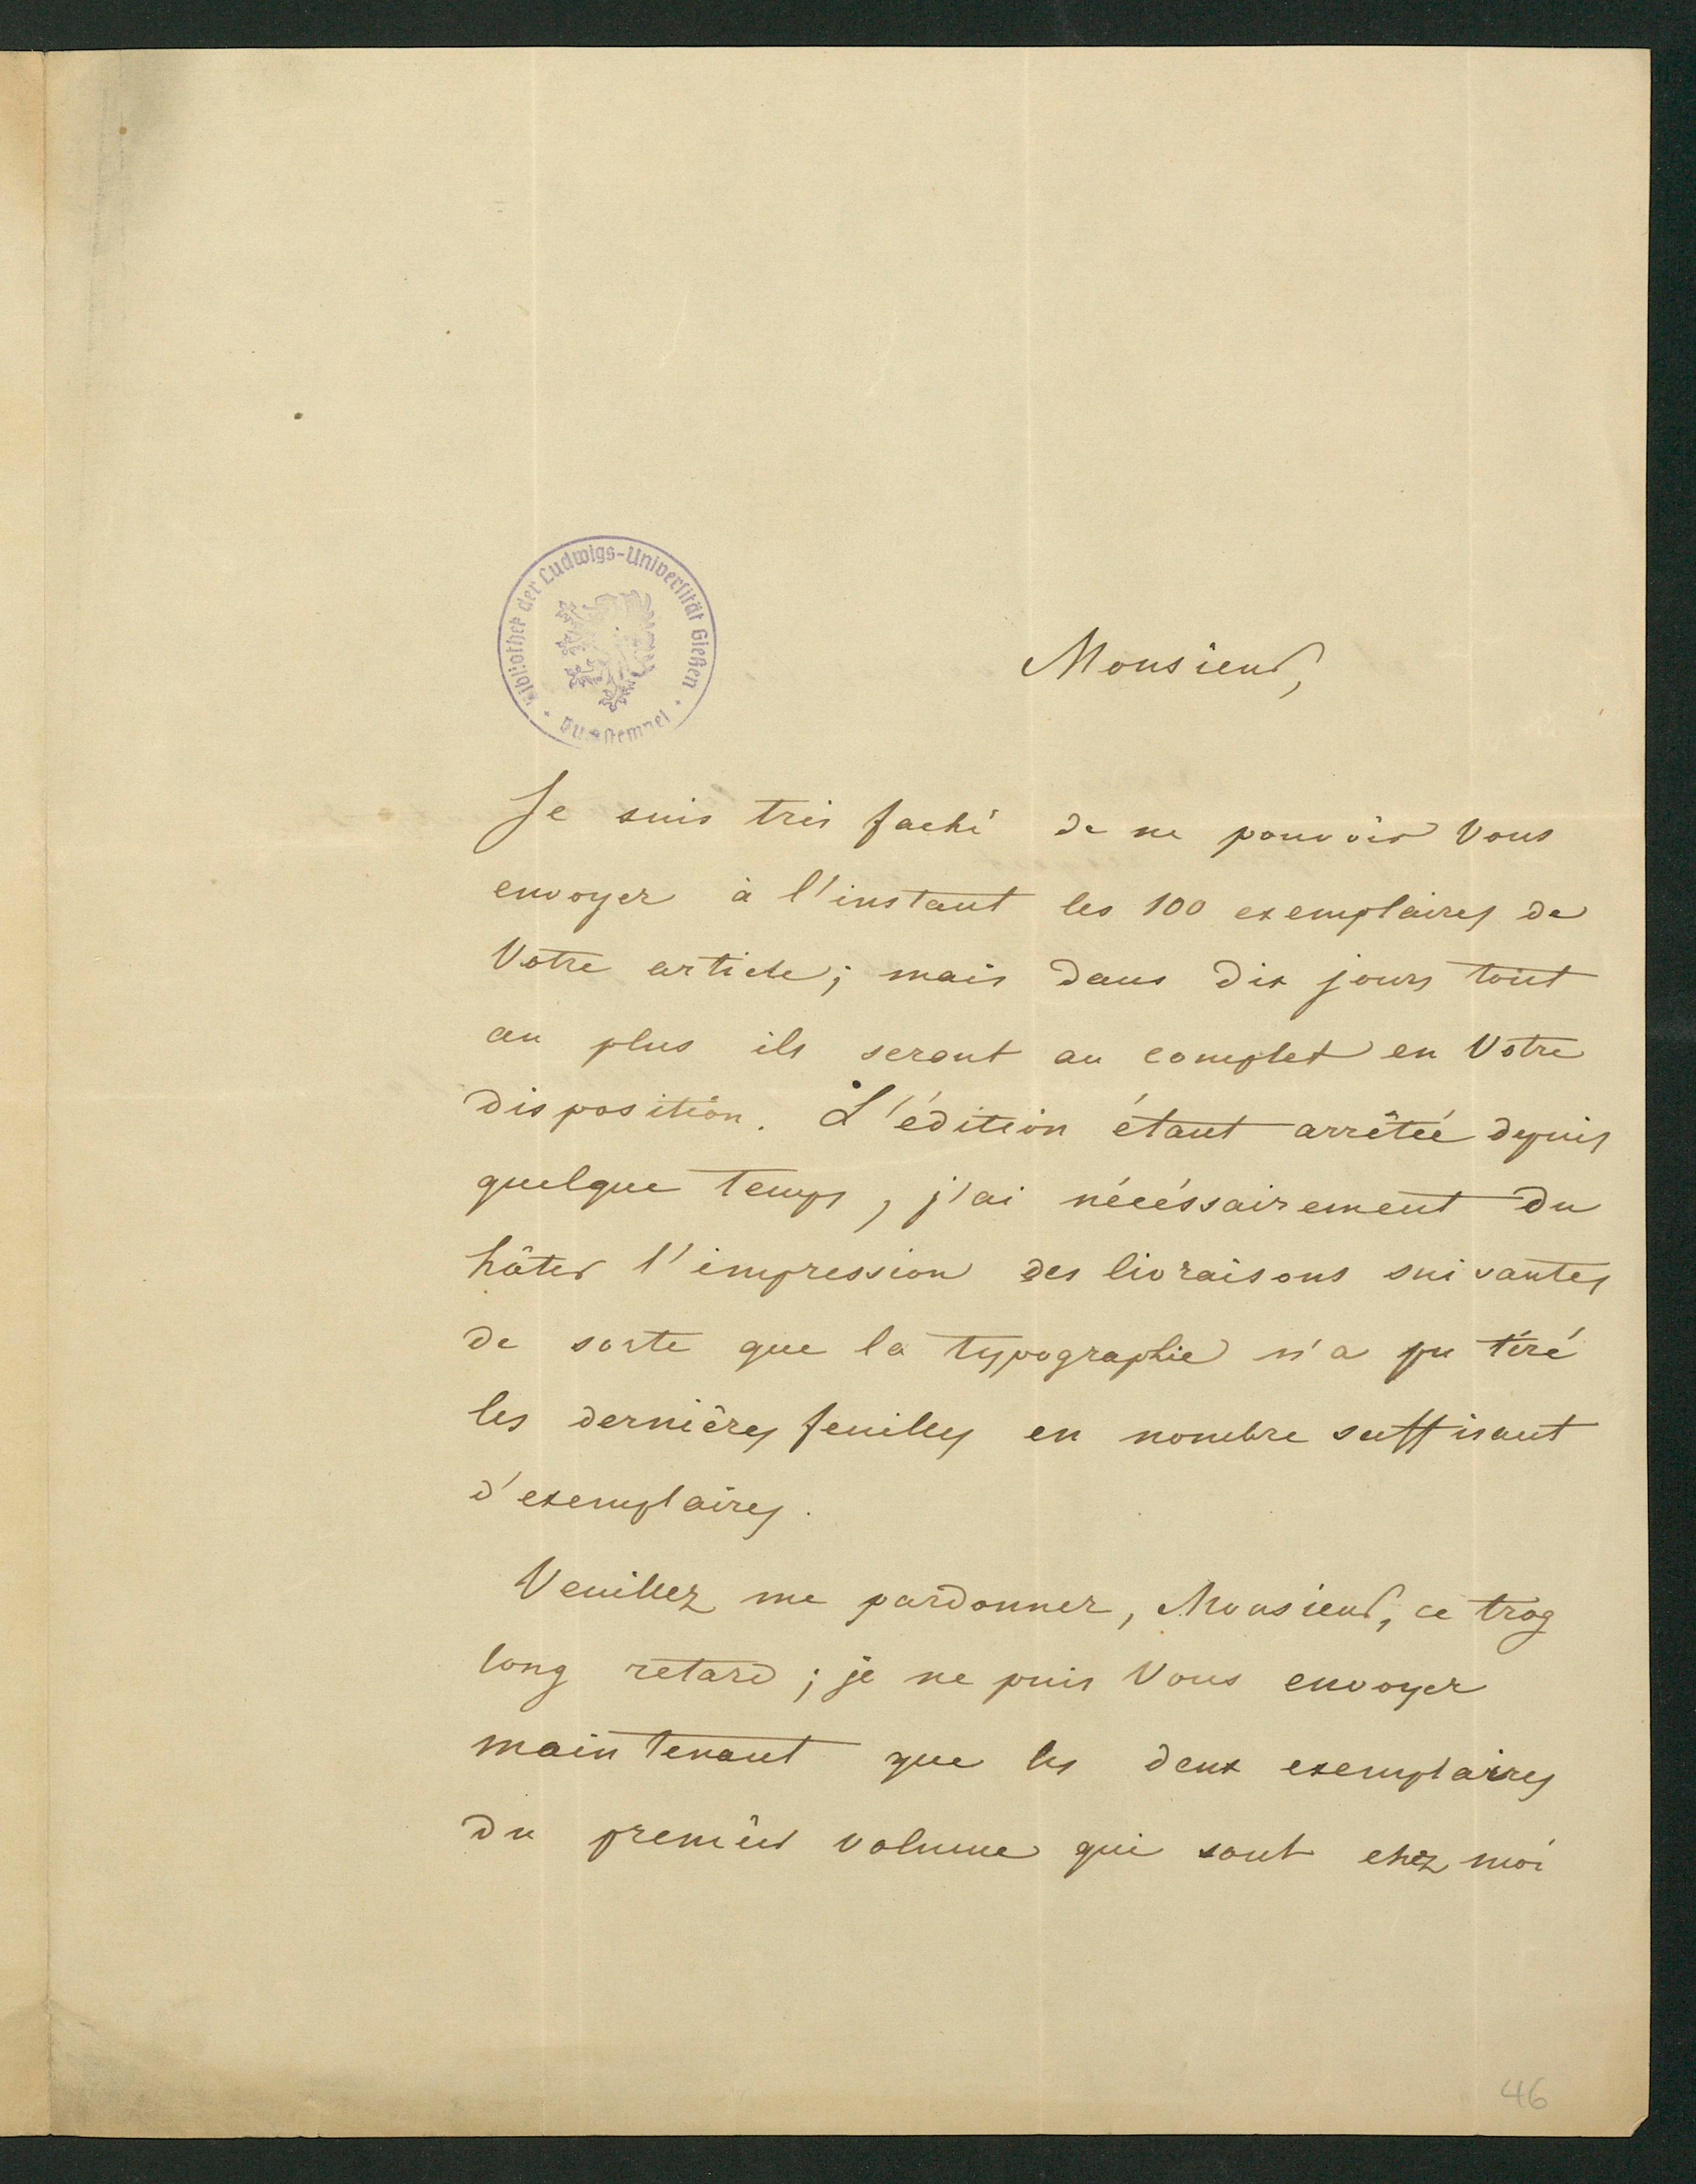 Bibliothek der Ludwigs-Universität Gießen
Monsieur,
Je suis très faché de ne pouvoir Vous
envoyer à l'instant les 100 exemplaires de
Votre article; mais dans dix jours tout
au plus ils seront au complet en Votre
disposition. L'édition étant arrêtée depuis
quelque temps, j'ai nécéssairement du
hâter l'impression des livraisons suivantes
de sorte que la typographie n'a pu tiré
les dernières feuilles en nombre suffisant
d'exemplaires.
Veuillez me pardonner, Monsieur, ce trop
long retard; je ne puis Vous envoyer
maintenant que les deux exemplaires
du premier volume qui sont chez moi
46